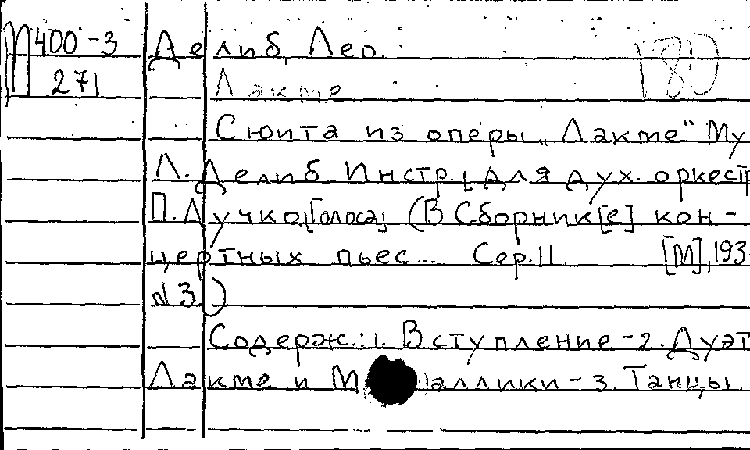 П400-3 Делиб, Лео.
271 Лакме
180
Сюита из оперы „Лакме" Му
Л. Делиб. Инстр. [для дух. оркест
П. Дучко. [Голоса] (В Сборник[е] кон-
цертных пьес... Сер. II [М], 193
N 3.)
Содерж.: 1. Вступление - 2. Дуэт
Лакме и М аллики - 3. Танцы